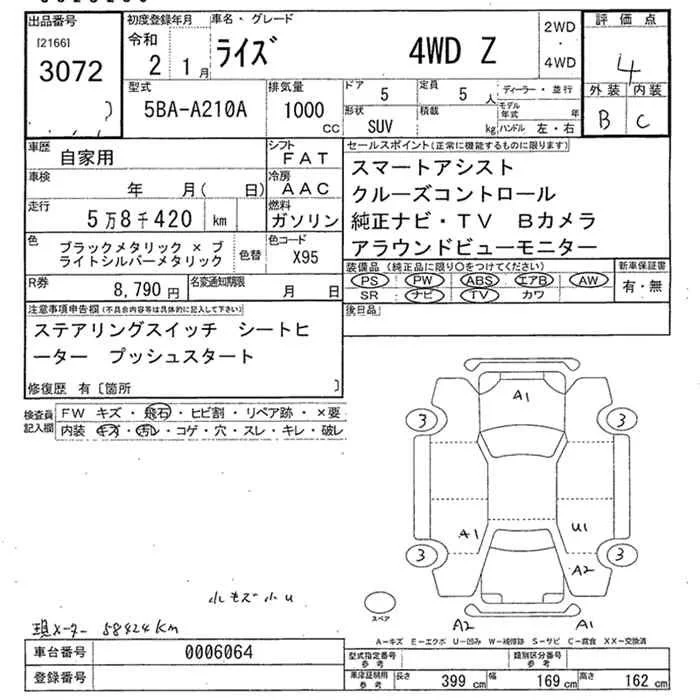 出品番号
[2166]
3072
)
初度登録年月
令和
2 1月
車名・グレード
ライズ 4WD Z
2WD
・
4WD
評価点
4
外装 内装
B C
型式
5BA-A210A
排気量
1000
CC
ドア 5
定員 5 人
形状 SUV
積載 kg
ディーラー・並行
モデル年式 年
ハンドル 左・右
車歴 自家用
シフト FAT
車検 年 月( 日)
冷房 AAC
走行 5万8千420 km
燃料 ガソリン
色 ブラックメタリック × ブ
ライトシルバーメタリック
色替
色コード X95
R券 8,790円
名変通知期限 月 日
セールスポイント(正常に機能するものに限ります)
スマートアシスト
クルーズコントロール
純正ナビ・TV Bカメラ
アラウンドビューモニター
装備品(純正品に限り○をつけてください)
PS PW ABS エアB AW
SR ナビ TV カワ
新車保証書
有・無
後日品
注意事項申告欄(不具合内容等は具体的に記入して下さい)
ステアリングスイッチ シートヒ
ーター プッシュスタート
修復歴 有〔箇所 〕
検査員
記入欄
FW キズ・飛石・ヒビ割・リペア跡・×要
内装・キズ・汚レ・コゲ・穴・スレ・キレ・破レ
A1
3 3
A1 U1
3 3
A2
スペア
A2 A1
小キズ 小U
現メーター 58424Km
A-キズ E-エクボ U-凹み W-補修跡 S-サビ C-腐食 XX-交換済
車台番号 0006064
登録番号
型式指定番号
参考
類別区分番号
参考
車庫証明用
参考
長さ 399 cm
幅 169 cm
高さ 162 cm